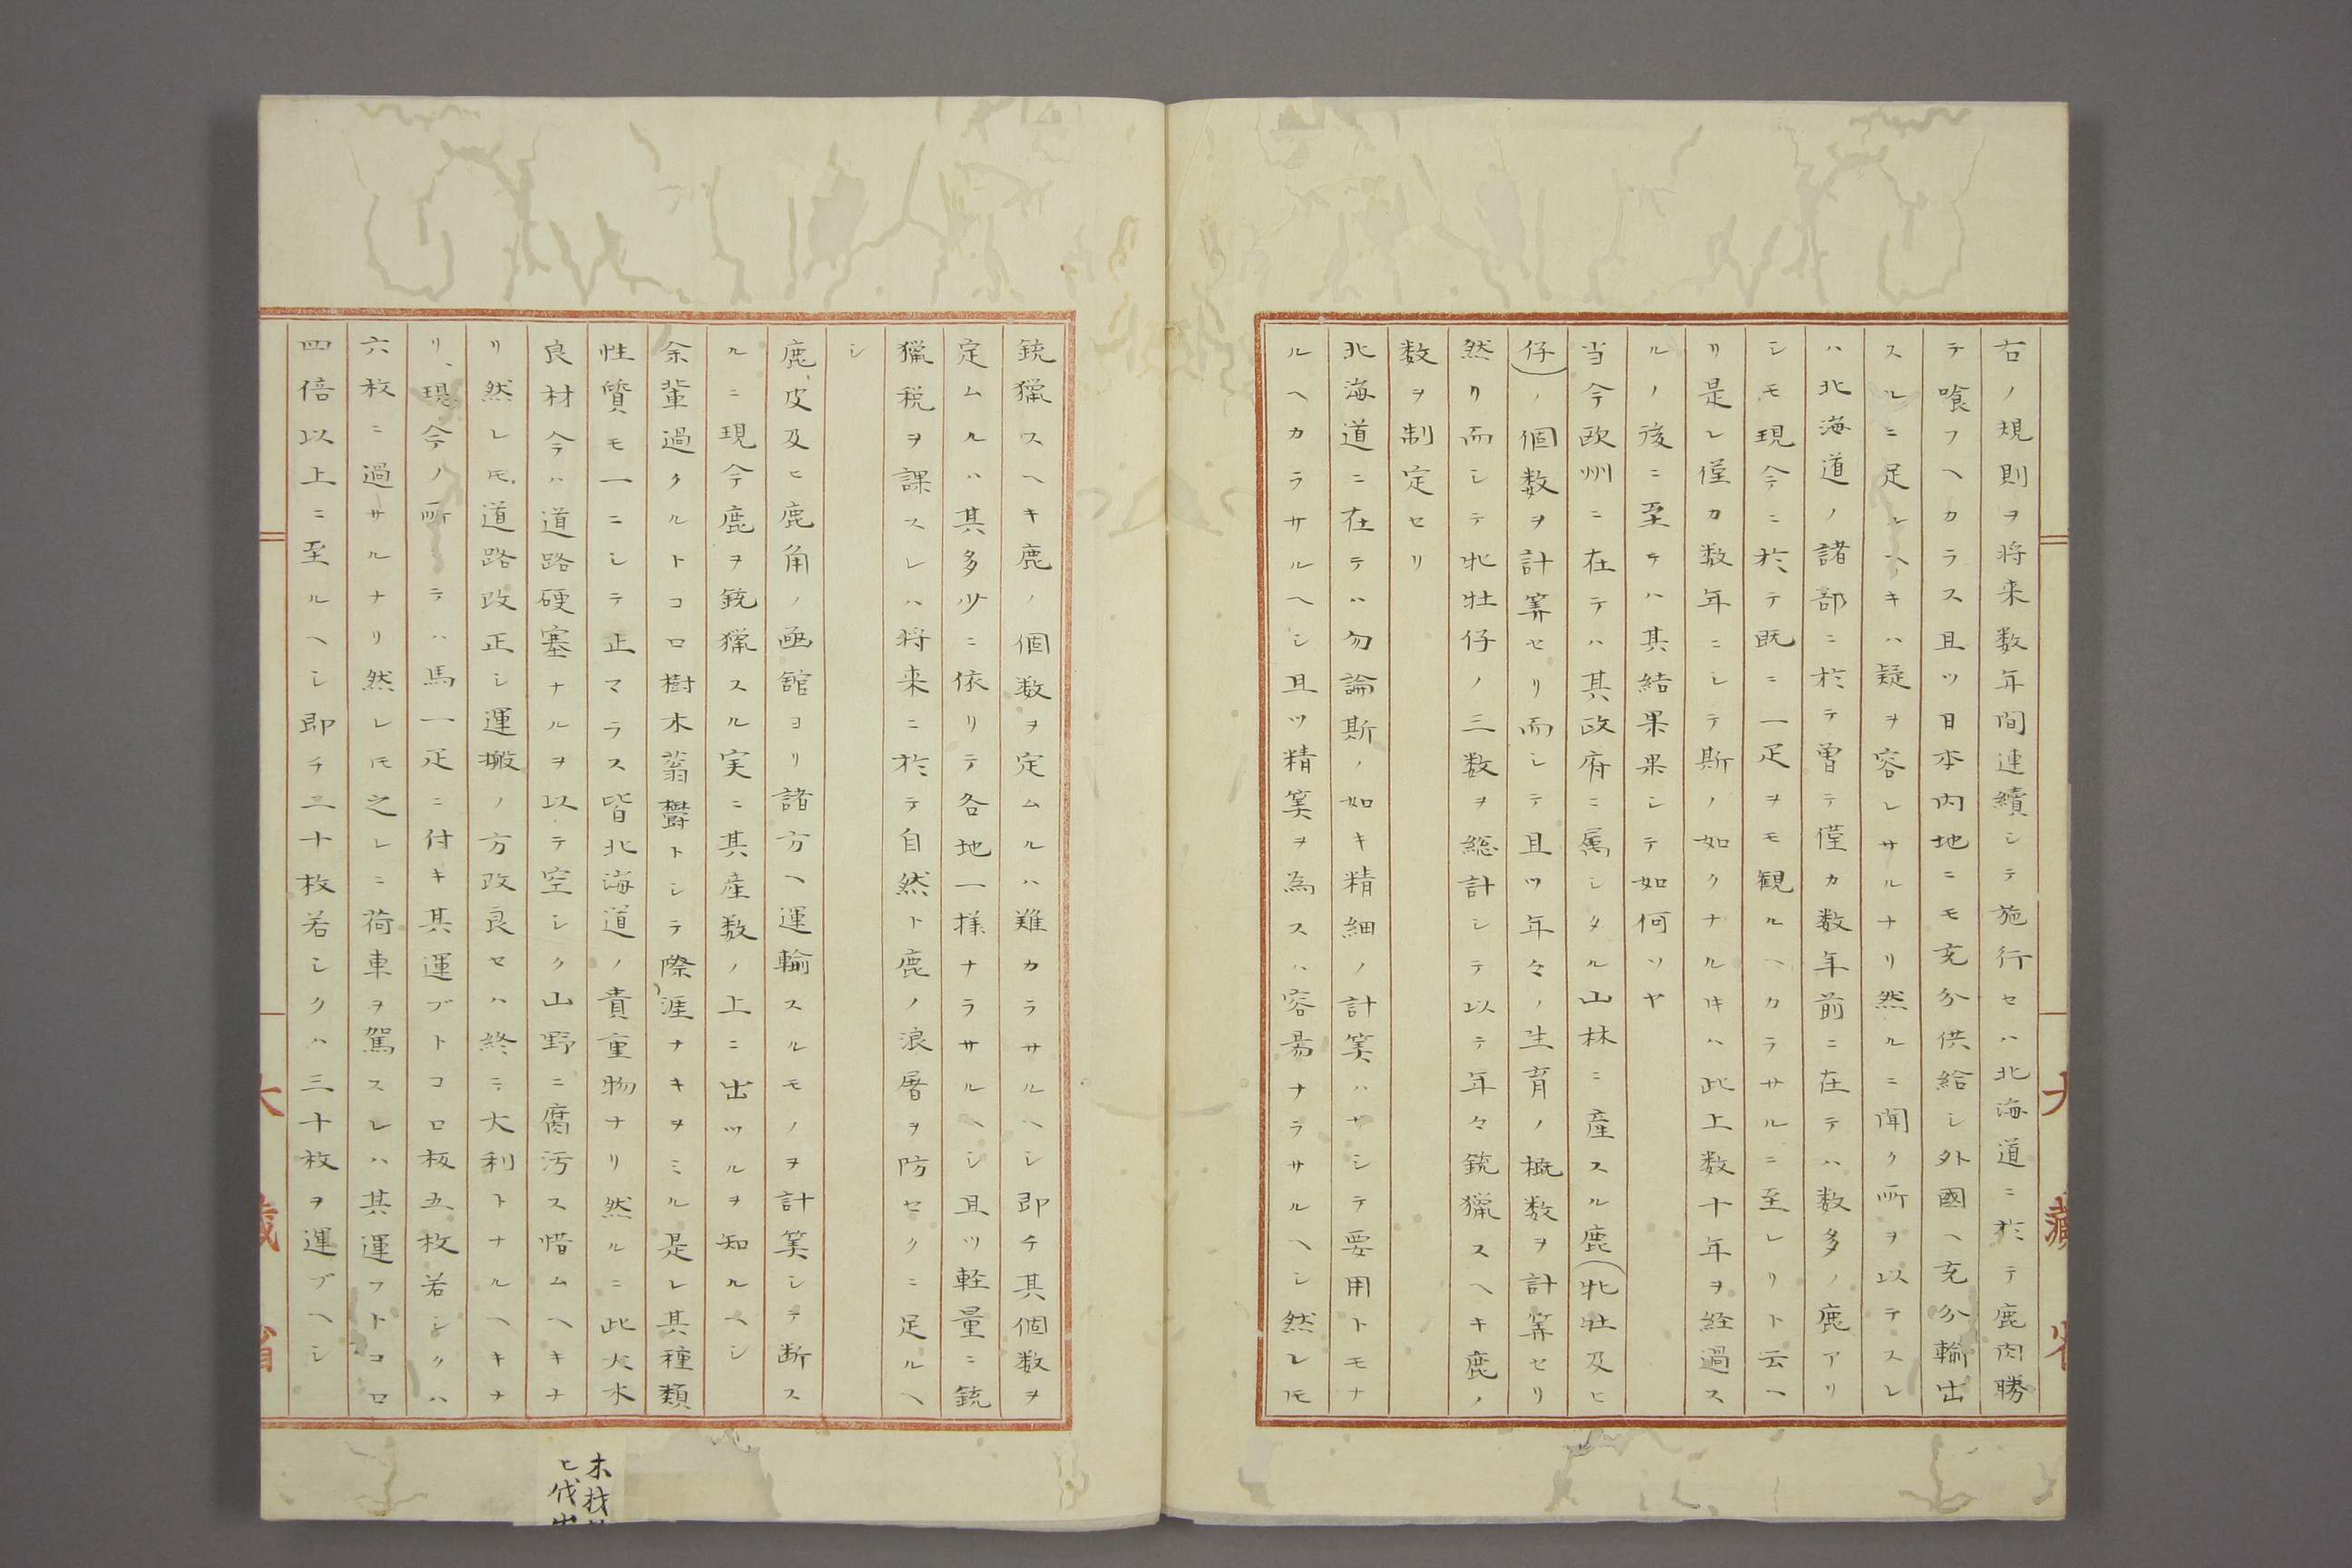 右ノ規則ヲ将来数年間連續シテ施行セハ北海道ニ於テ鹿肉勝
テ喰フヘカラス且ツ日本内地ニモ充分供給シ外國ヘ充分輸出
スルニ足ルヘキハ疑ヲ容レサルナリ然ルニ聞ク所ヲ以テスレ
ハ北海道ノ諸部ニ於テ曽テ僅カ数年前ニ在テハ数多ノ鹿アリ
シモ現今ニ於テ既ニ一疋ヲモ観ルヘカラサルニ至レリト云ヘ
リ是レ僅カ数年ニシテ斯ノ如クナルトキハ此上数十年ヲ経過ス
ルノ後ニ至テハ其結果果シテ如何ソヤ
当今欧州ニ在テハ其政府ニ属シタル山林ニ産スル鹿(牝牡及ヒ
仔)ノ個数ヲ計算セリ而シテ且ツ年々ノ生育ノ概数ヲ計算セリ
然リ而シテ牝牡仔ノ三数ヲ総計シテ以テ年々銃猟スヘキ鹿ノ
数ヲ制定セリ
北海道ニ在テハ勿論斯ノ如キ精細ノ計筭ハサシテ要用トモナ
ルヘカラサルヘシ且ツ精筭ヲ為スハ容易ナラサルヘシ然レ𪜈
銃猟スヘキ鹿ノ個数ヲ定ムルハ難カラサルヘシ即チ其個数ヲ
定ムルハ其多少ニ依リテ各地一様ナラサルヘシ且ツ軽量ニ銃
猟税ヲ課スレハ将来ニ於テ自然ト鹿ノ浪屠ヲ防セクニ足ルヘ
シ
鹿皮及ヒ鹿角ノ凾舘ヨリ諸方ヘ運輸スルモノヲ計筭シテ断ス
ルニ現今鹿ヲ銃猟スル実ニ其産数ノ上ニ出ツルヲ知ルヘシ
余輩過クルトコロ樹木蓊欝トシテ際涯ナキヲミル是レ其種類
性質モ一ニシテ正マラス皆北海道ノ貴重物ナリ然ルニ此大木
良材今ハ道路硬塞ナルヲ以テ空シク山野ニ腐汚ス惜ムヘキナ
リ然レ𪜈道路改正シ運搬ノ方改良セハ終ニ大利トナルヘキナ
リ、現今ノ所テハ馬一疋ニ付キ其運ブトコロ板五枚若シクハ
六枚ニ過サルナリ然レ𪜈之レニ荷車ヲ駕スレハ其運フトコロ
四倍以上ニ至ルヘシ即チ二十枚若シクハ三十枚ヲ運ブヘシ
木材
ヒ伐
大藏省